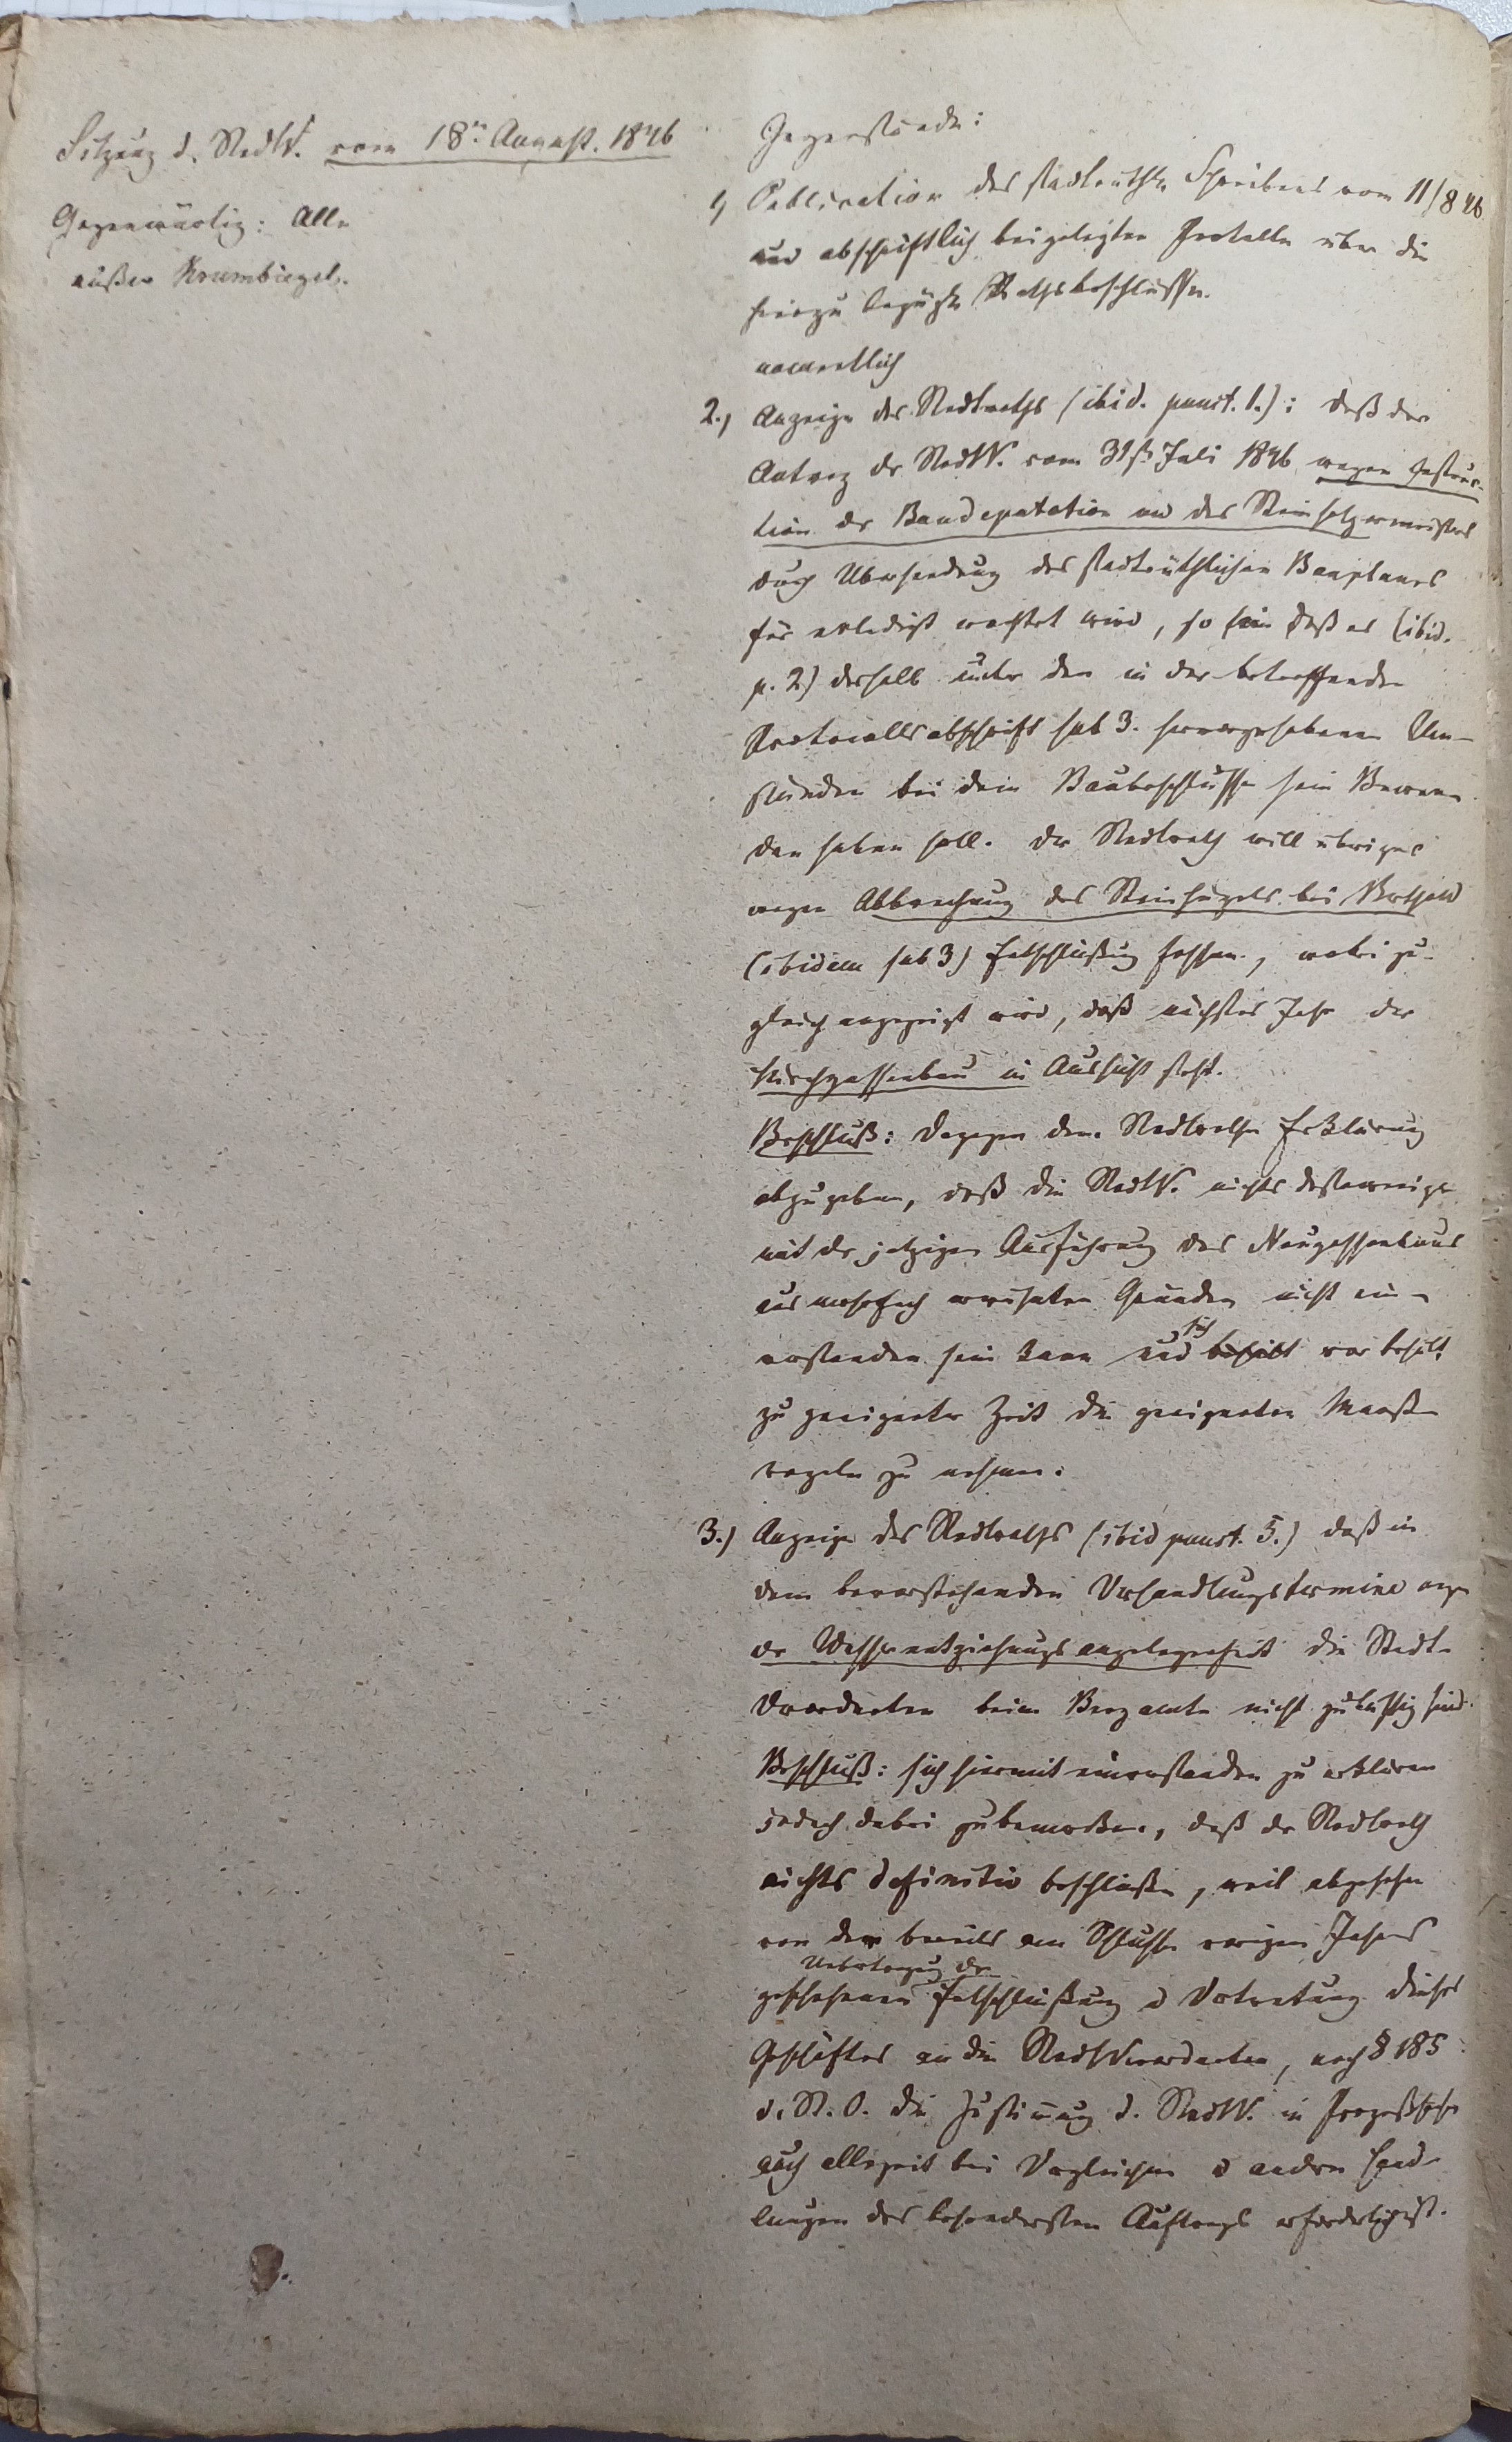 Sitzung d. StadtV. vom 18n August. 1846
Gegenwärtig: Alle
außer Krumbiegel.
Gegenstände:
1) Publication des stadträthl. Schreibens vom 11/8 46
und abschriftlich beigelegten Protocolle über die
hierzu bezügl. Rathsbeschlüsse.
namentlich
2.) Anzeige des Stadtraths (ibid. punct. 1.): daß der
Antrag der StadtV. vom 31st Juli 1846 wegen Instruc-
tion der Baudeputation und des Steinsetzermeisters
durch Übersendung des stadträthlichen Bauplanes
für erledigt erachtet wird, so wie daß es (ibid.
p. 2) deshalb unter den in der betreffenden
Protocollsabschrift sub 3. hervorgehobenen Um-
ständen bei dem Baubeschlusse sein Bewen-
den haben soll. Der Stadtrath will übrigens
wegen Abbrechung des Steinhügels bei
(ibidem sub 3) Entschließung fassen, wobei zu-
gleich angezeigt wird, daß nächstes Jahr der
Kirchgassenbau in Aussicht steht.
Beschluß: dagegen dem Stadtrathe Erklärung
abzugeben, daß die StadtV. nichts destoweniger
mit der jetzigen Ausführung des Neugassenbaus
aus mehrfach erwähnten Gründen nicht ein-
verstanden sein kann und sich behält vor behält
zu geeigneter Zeit die geeigneten Maaß-
regeln zu nehmen.
3.) Anzeige des Stadtraths (ibid punct. 5.) daß in
dem bevorstehenden Verhandlungstermine wegen
der Wasserentziehungsangelegenheit die Stadt-
verordneten beim Bergamte nicht zulässig sind.
Beschluß: sich hiermit einverstanden zu erklären
jedoch dabei zu bemerken, daß der Stadtrath
nichts definitiv beschließe, weil abgesehen
von der bereits am Schlusse vorigen Jahres
Uebertragung der
geschehenen Entschließung u Vertretung dieses
Geschäftes an die Stadtverordneten, nach § 185
d. St. O. die Zustimmung d. StadtV. in
auch allezeit bei Vergleichen u andern Hand-
lungen des besondersten Auftrags erforderlich ist.